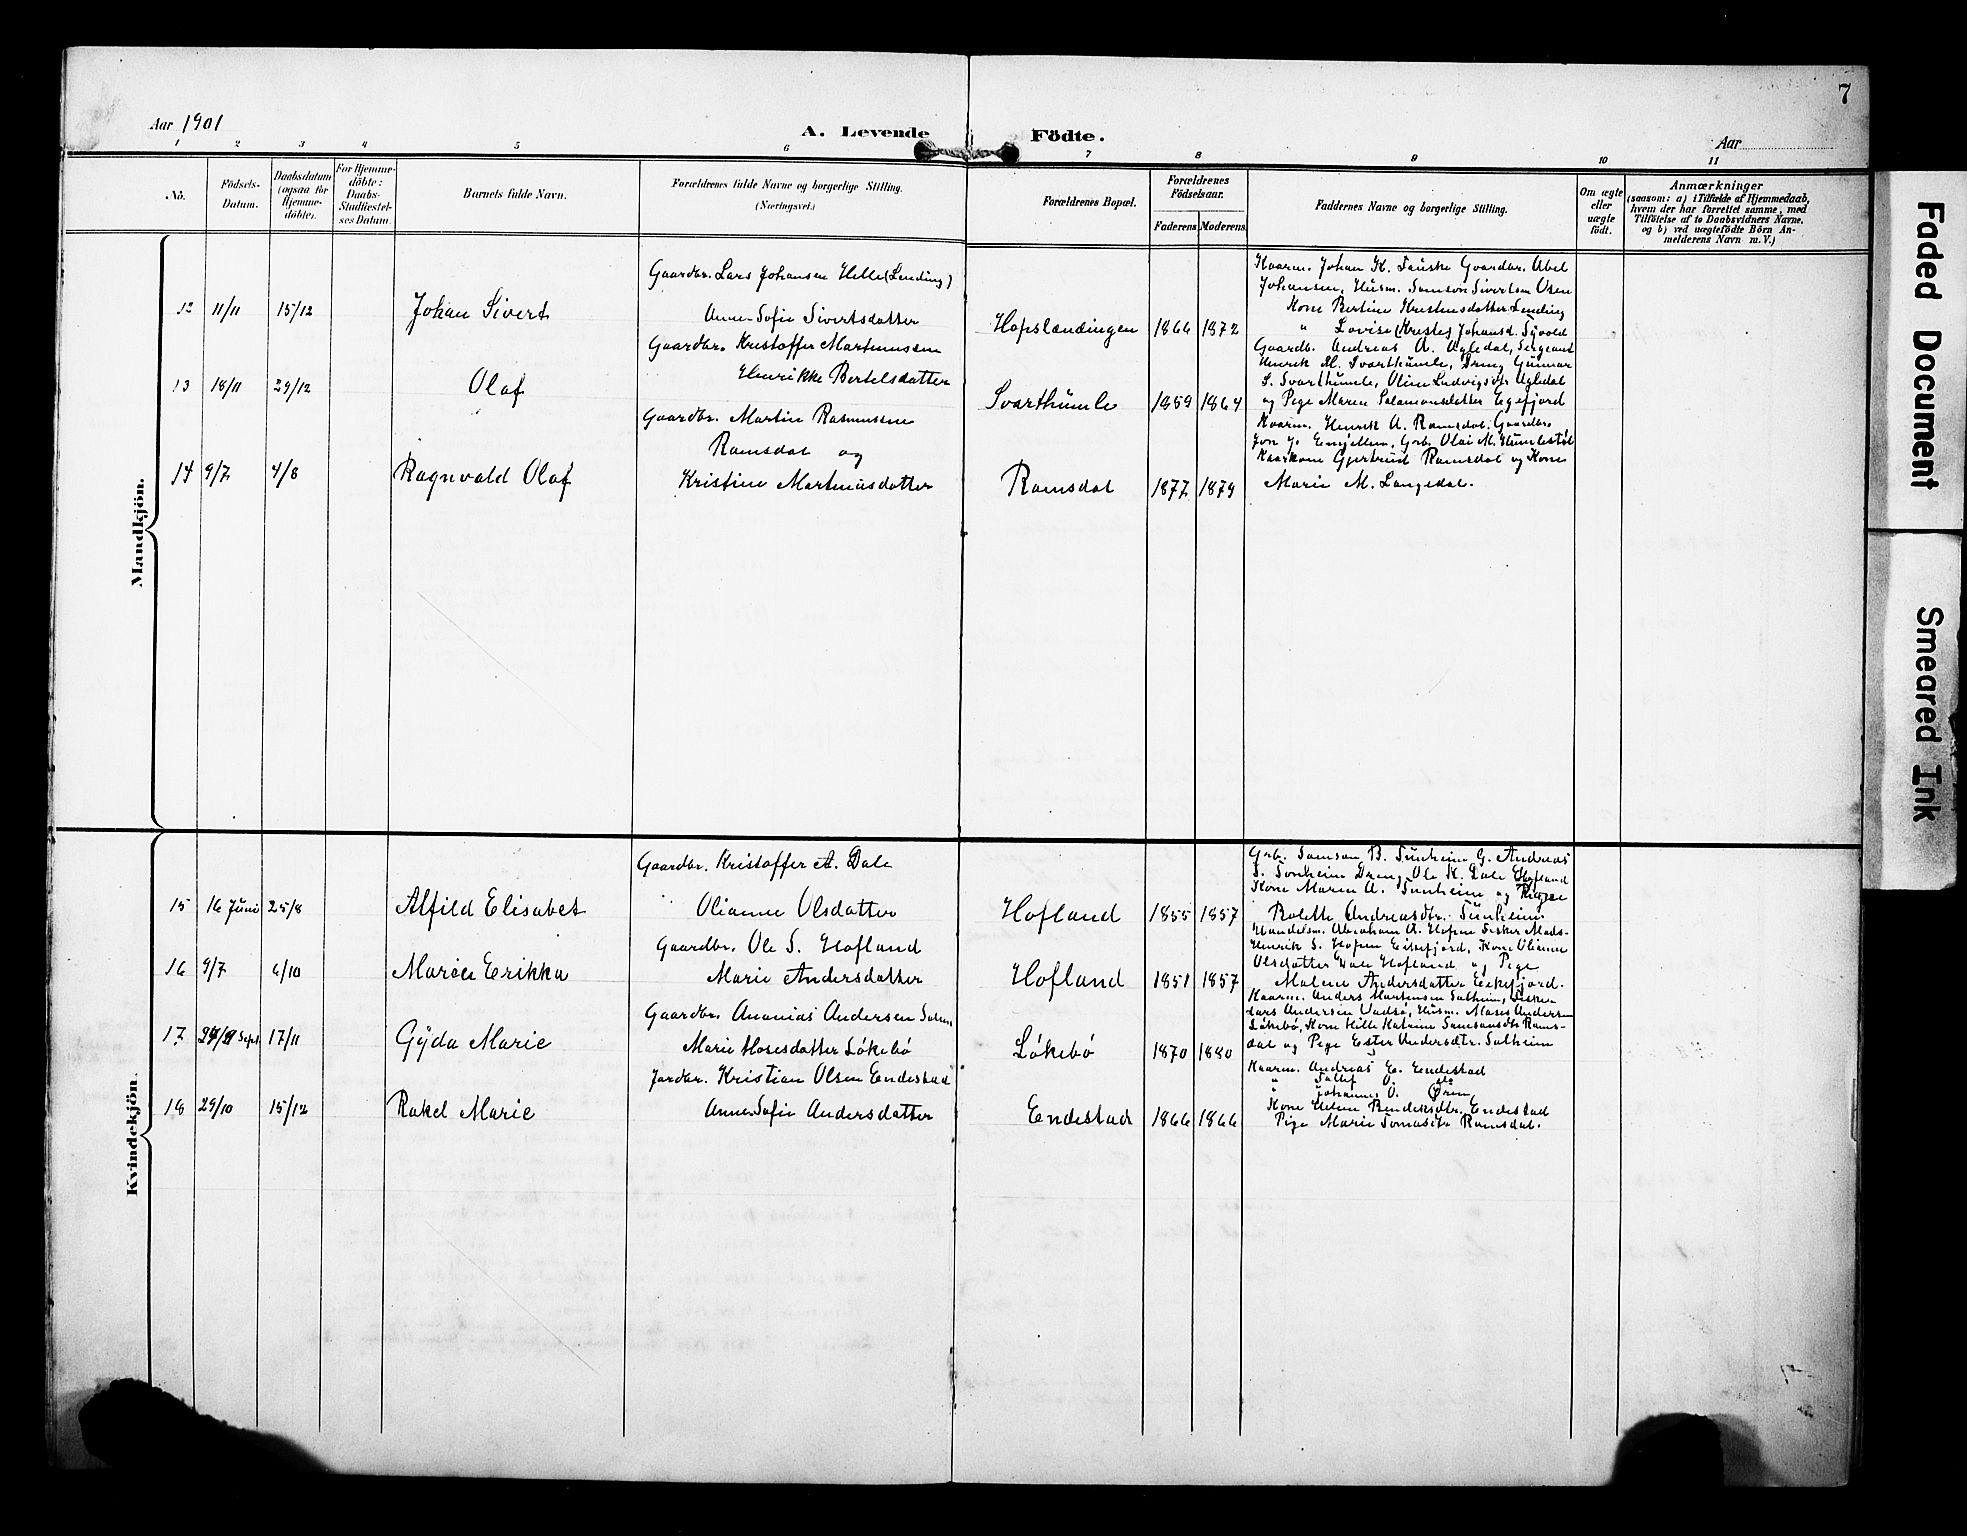 7
Aar 1901
A. Levende Födte.
Aar
1 2 3 4 5 6 7 8 9 10 11
No.
Födsels-Datum.
Daabsdatum (ogsaa for Hjemme-döbte).
For Hjemme-döbte: Daabs-Stadfæstel-ses Datum.
Barnets fulde Navn.
Forældrenes fulde Navne og borgerlige Stilling.
(Næringsvei.)
Forældrenes Bopæl.
Forældrenes Födselsaar.
Faderens Moderens
Faddernes Navne og borgerlige Stilling.
Om ægte eller uægte födt.
Anmærkninger
(saasom: a) i Tilfælde af Hjemmedaab,
hvem der har forrettet samme, med
Tilföielse af to Daabsvidners Navne,
og b) ved uægtefödte Börn An-
melderens Navn m. V.)
Mandkjön.
12 11/11 15/12 Johan Sivert
Gaardbr. Lars Johansen Helle (Lending)
Anne-Sofie Sivertsdatter
Hopslendingen 1864 1872
Kaarm. Johan K. Fauske Gaardbr. Abel
Johansen, Husm. Samson Sivertsen Osen
Kone Bertine Kristensdatter Lending
" Lovise (Kristes) Johansd.
13 18/11 29/12 Olaf
Gaardbr. Kristoffer Martinussen
Henrikke Bertelsdatter
Svarthumle 1859 1864
Gaardb. Andreas A. Agledal, Sergeant
Henrik M. Svarthumle, Dreng Gunnar
S. Svarthumle, Oline Ludvigsdtr Agledal
og Pige Maren Salamonsdatter Egefjord
14 9/7 4/8 Ragnvald Olaf
Gaardbr. Martin Rasmussen
Ramsdal og
Kristine Martinusdatter
Ramsdal 1877 1879
Kaarm. Henrik A. Ramsdal. Gaardbr.
Jon J. Engjellen, Grb. Olai M. Humlestøl
Kaarkone Gjertrud Ramsdal og Kone
Marie M. Langedal.
Kvindekjön.
15 16 Juni 25/8 Alfild Elisabet
Gaardbr. Kristoffer A. Dale
Olianne Olsdatter
Hofland 1855 1857
Grb. Samson B. Sunheim G. Andreas
S. Sonheim Dreng Ole K. Dale Hofland
Kone Maren A. Sunheim og Pige
Rolette Andreasdtr. Sunheim.
16 9/7 6/10 Maren Erikka
Gaardbr. Ole S. Hofland
Marie Andersdatter
Hofland 1851 1857
Handelsm. Abraham A. Hopen Fisker Mads-
Henrik S. Hopen Eikefjord, Kone Olianne
Olsdatter Dale Hofland og Pige
Malene Andersdatter Eikefjord.
17 Sept. 17/11 Gÿda Marie
Gaardbr. Ananias Andersen
Marie Mosesdatter Løkebø
Løkebø 1870 1880
Kaarm. Anders Mortensen Solheim, Fisker
Lars Andersen Vadsø, Husm. Moses Andersen
Løkebø, Kone Hille Katrine Samsonsdtr Rams-
dal og Pige Ester Andersdtr. Solheim
18 29/10 15/12 Rakel Marie
Jordbr. Kristian Olsen Endestad
Anne-Sofie Andersdatter
Endestad 1866 1866
Kaarm. Andreas E. Endestad
" O. do
" Johannes O. Øren
Kone Helene Bendiksdtr. Endestad
Pige Marie Tomasdtr Ramsdal.
Faded Document
Smeared Ink